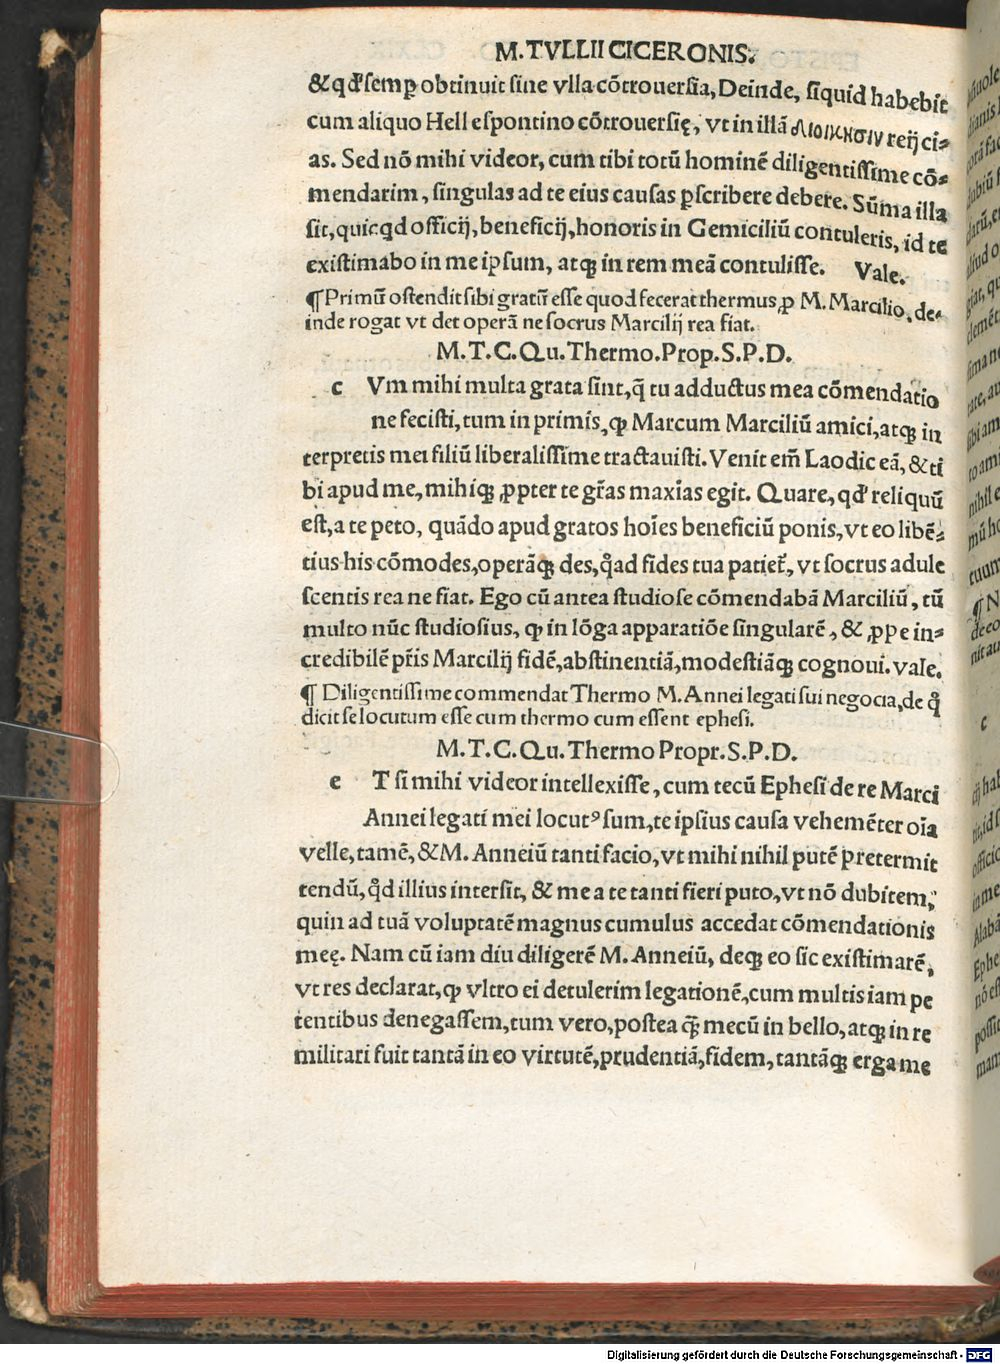 M. TVLLII CICERONIS.
& qđ semꝑ obtinuit sine vlla cōtrouersia, Deinde, siquid habebit
cum aliquo Hellespontino cōtrouersię, vt in illā διοίκησιν reijci⸗
as. Sed nō mihi videor, cum tibi totū hominē diligentissime cō⸗
mendarim, singulas ad te eius causas ꝑscribere debere. Sūma illa
sit, quicqd officij, beneficij, honoris in Gemiciliū contuleris, id te
existimabo in me ipsum, atqꝫ in rem meā contulisse. Vale.
¶ Primū ostendit sibi gratū esse quod fecerat thermus, ꝓ M. Marcilio, de⸗
inde rogat vt det operā ne socrus Marcilij rea fiat.
M. T. C. Qu. Thermo. Prop. S. P. D.
c Vm mihi multa grata sint, q̄ tu adductus mea cōmendatio
ne fecisti, tum in primis, ꝙ Marcum Marciliū amici, atqꝫ in
terpretis mei filiū liberalissime tractauisti. Venit em̄ Laodiceā, & ti
bi apud me, mihiqꝫ ꝓpter te gr̄as maxīas egit. Quare, qđ reliquū
est, a te peto, quādo apud gratos hoīes beneficiū ponis, vt eo libē⸗
tius his cōmodes, operāqꝫ des, q̊ad fides tua patiet᷑, vt socrus adule
scentis rea ne fiat. Ego cū antea studiose cōmendabā Marciliū, tū
multo nūc studiosius, ꝙ in lōga apparatiōe singularē, & ꝓpe in⸗
credibilē pr̄is Marcilij fidē, abstinentiā, modestiāqꝫ cognoui. vale.
¶ Diligentissime commendat Thermo M. Annei legati sui negocia, de q̊
dicit se locutum esse cum thermo cum essent ephesi.
M. T. C. Qu. Thermo Propr. S. P. D.
e T si mihi videor intellexisse, cum tecū Ephesi de re Marci
Annei legati mei locutꝰ sum, te ipsius causa vehemēter oīa
velle, tamē, & M. Anneiū tanti facio, vt mihi nihil putē p̄termit
tendū, q̊d illius intersit, & me a te tanti fieri puto, vt nō dubitem,
quin ad tuā voluptatē magnus cumulus accedat cōmendationis
meę. Nam cū iam diu diligerē M. Anneiū, deqꝫ eo sic existimarē,
vt res declarat, ꝙ vltro ei detulerim legationē, cum multis iam pe
tentibus denegassem, tum vero, postea q̄ꝫ mecū in bello, atqꝫ in re
militari fuit tantā in eo virtutē, prudentiā, fidem, tantāqꝫ erga me
Digitalisierung gefördert durch die Deutsche Forschungsgemeinschaft - DFG